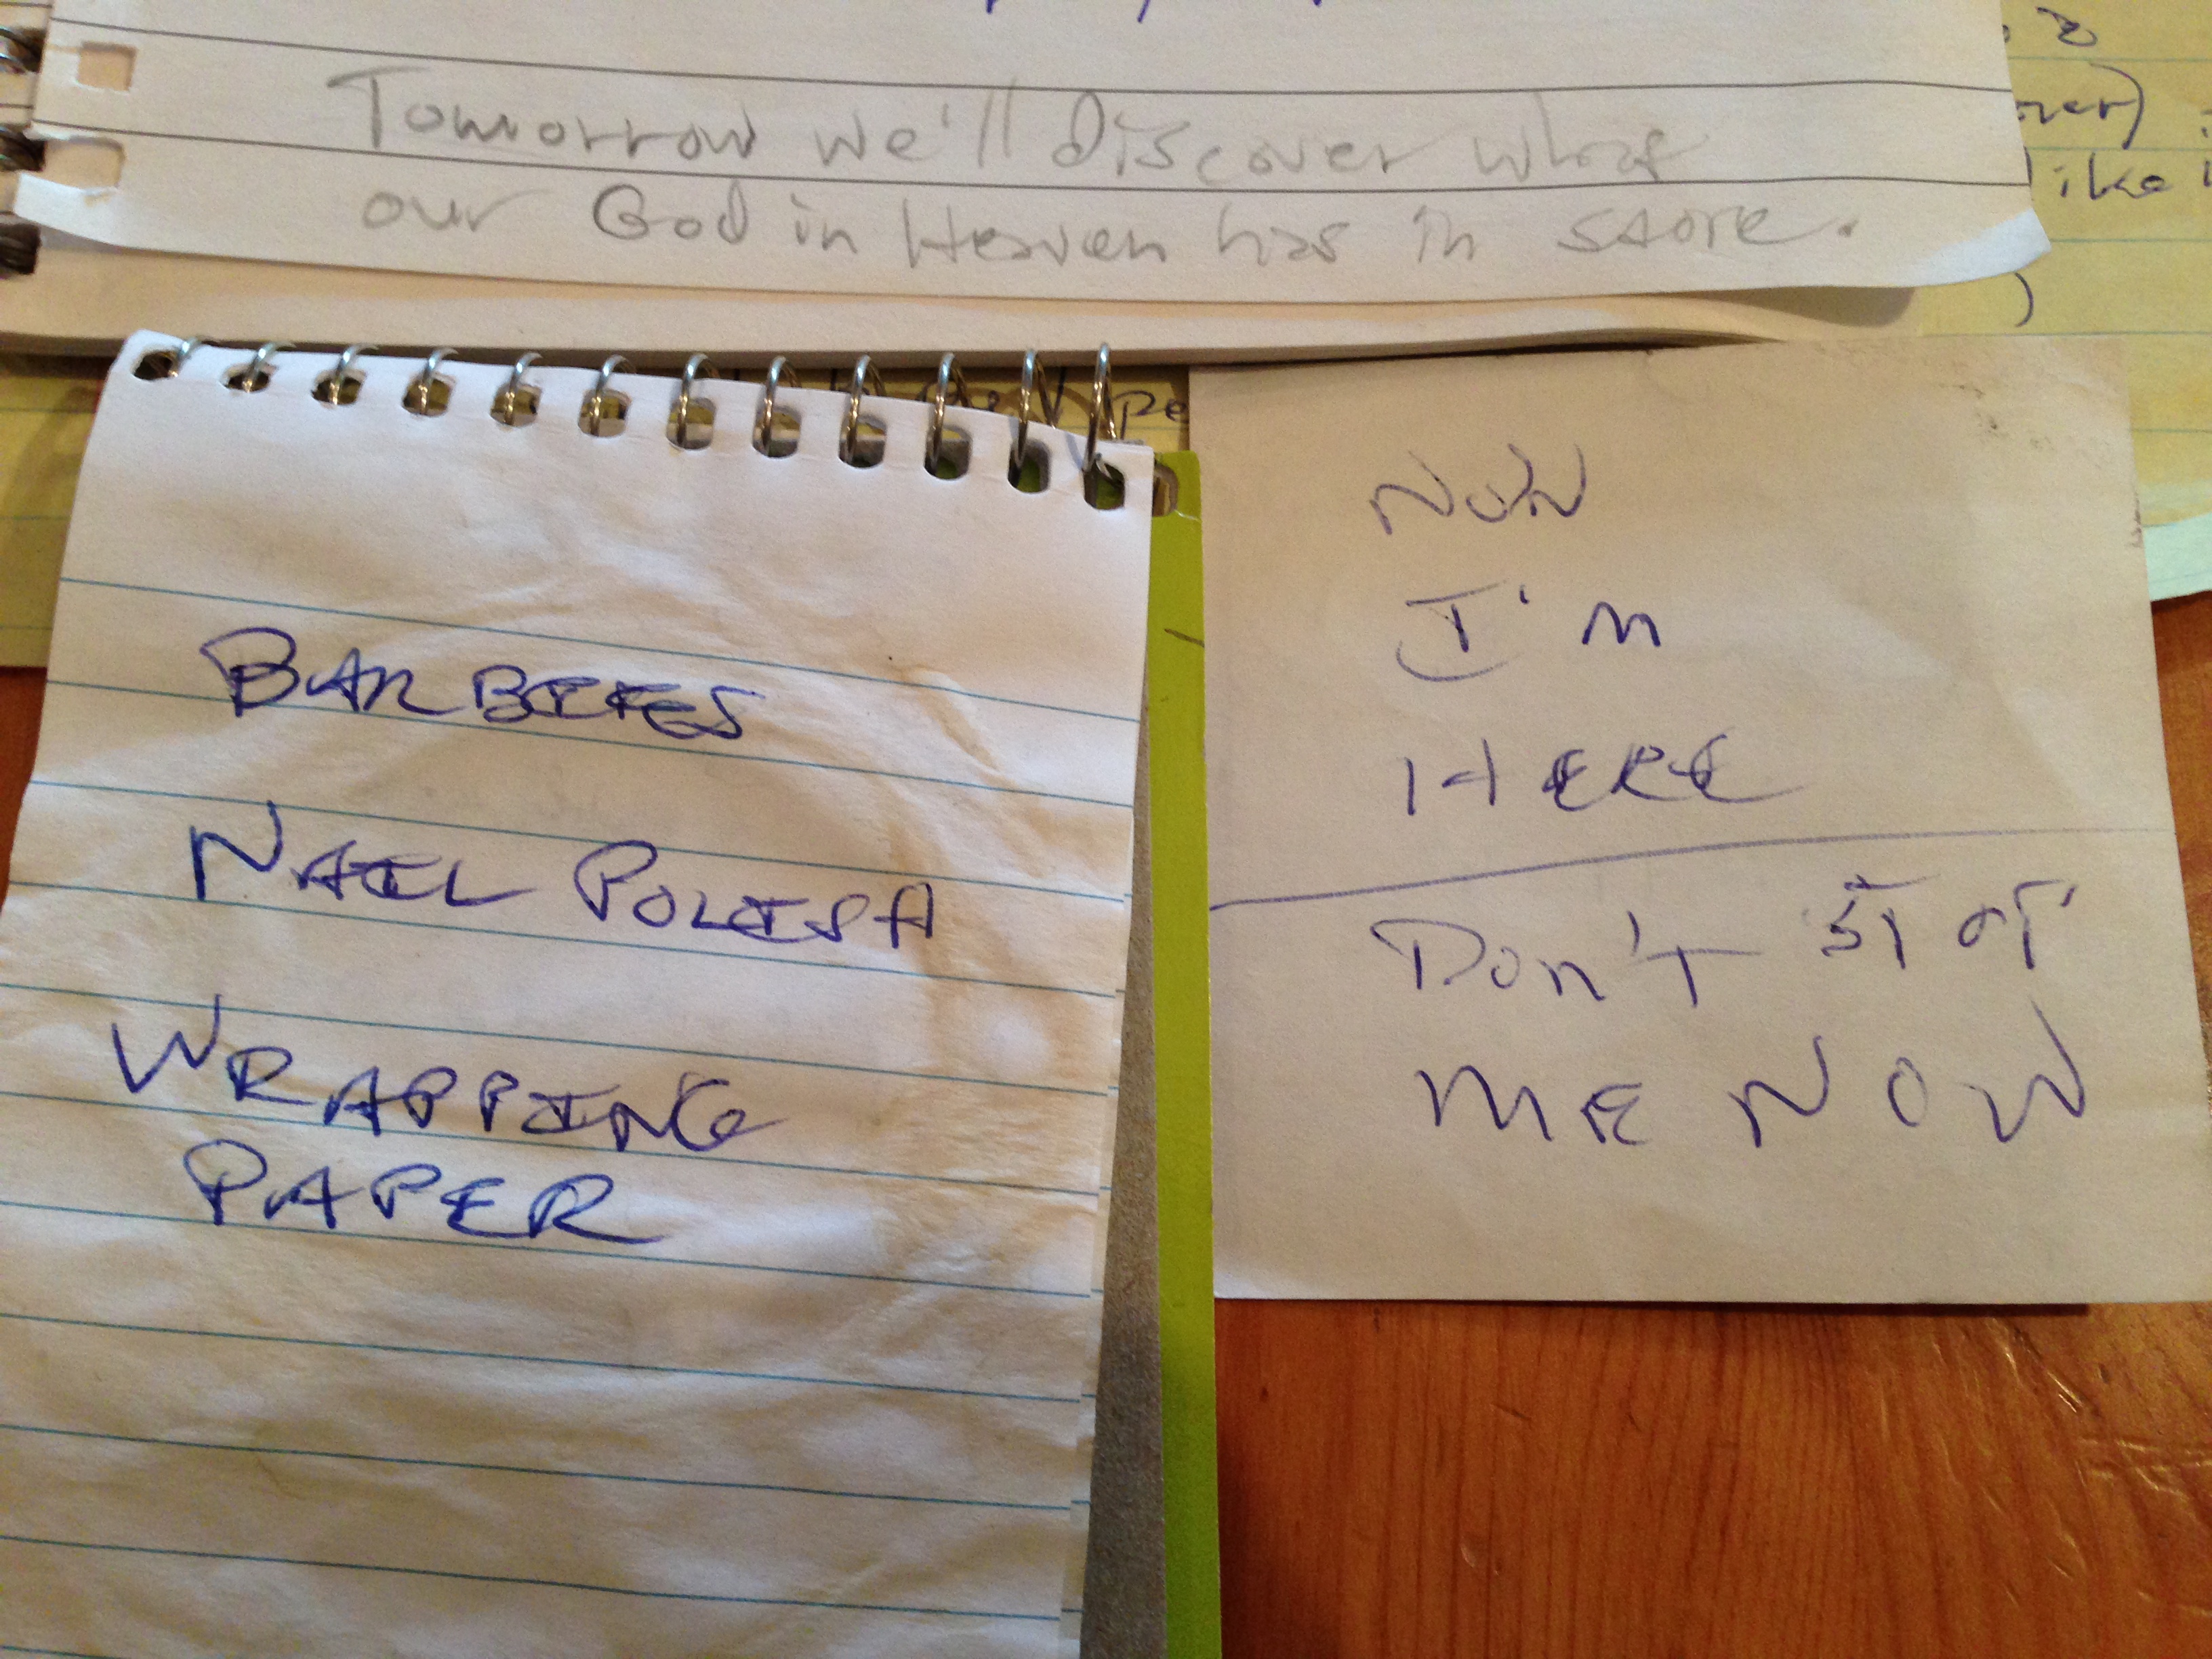 Tomorrow we'll discover what
our God in Heaven has in store.
over)
like
BARBIES
NAIL POLISH
WRAPPING
PAPER
NOW
I'M
HERE
Don't STOP
ME NOW